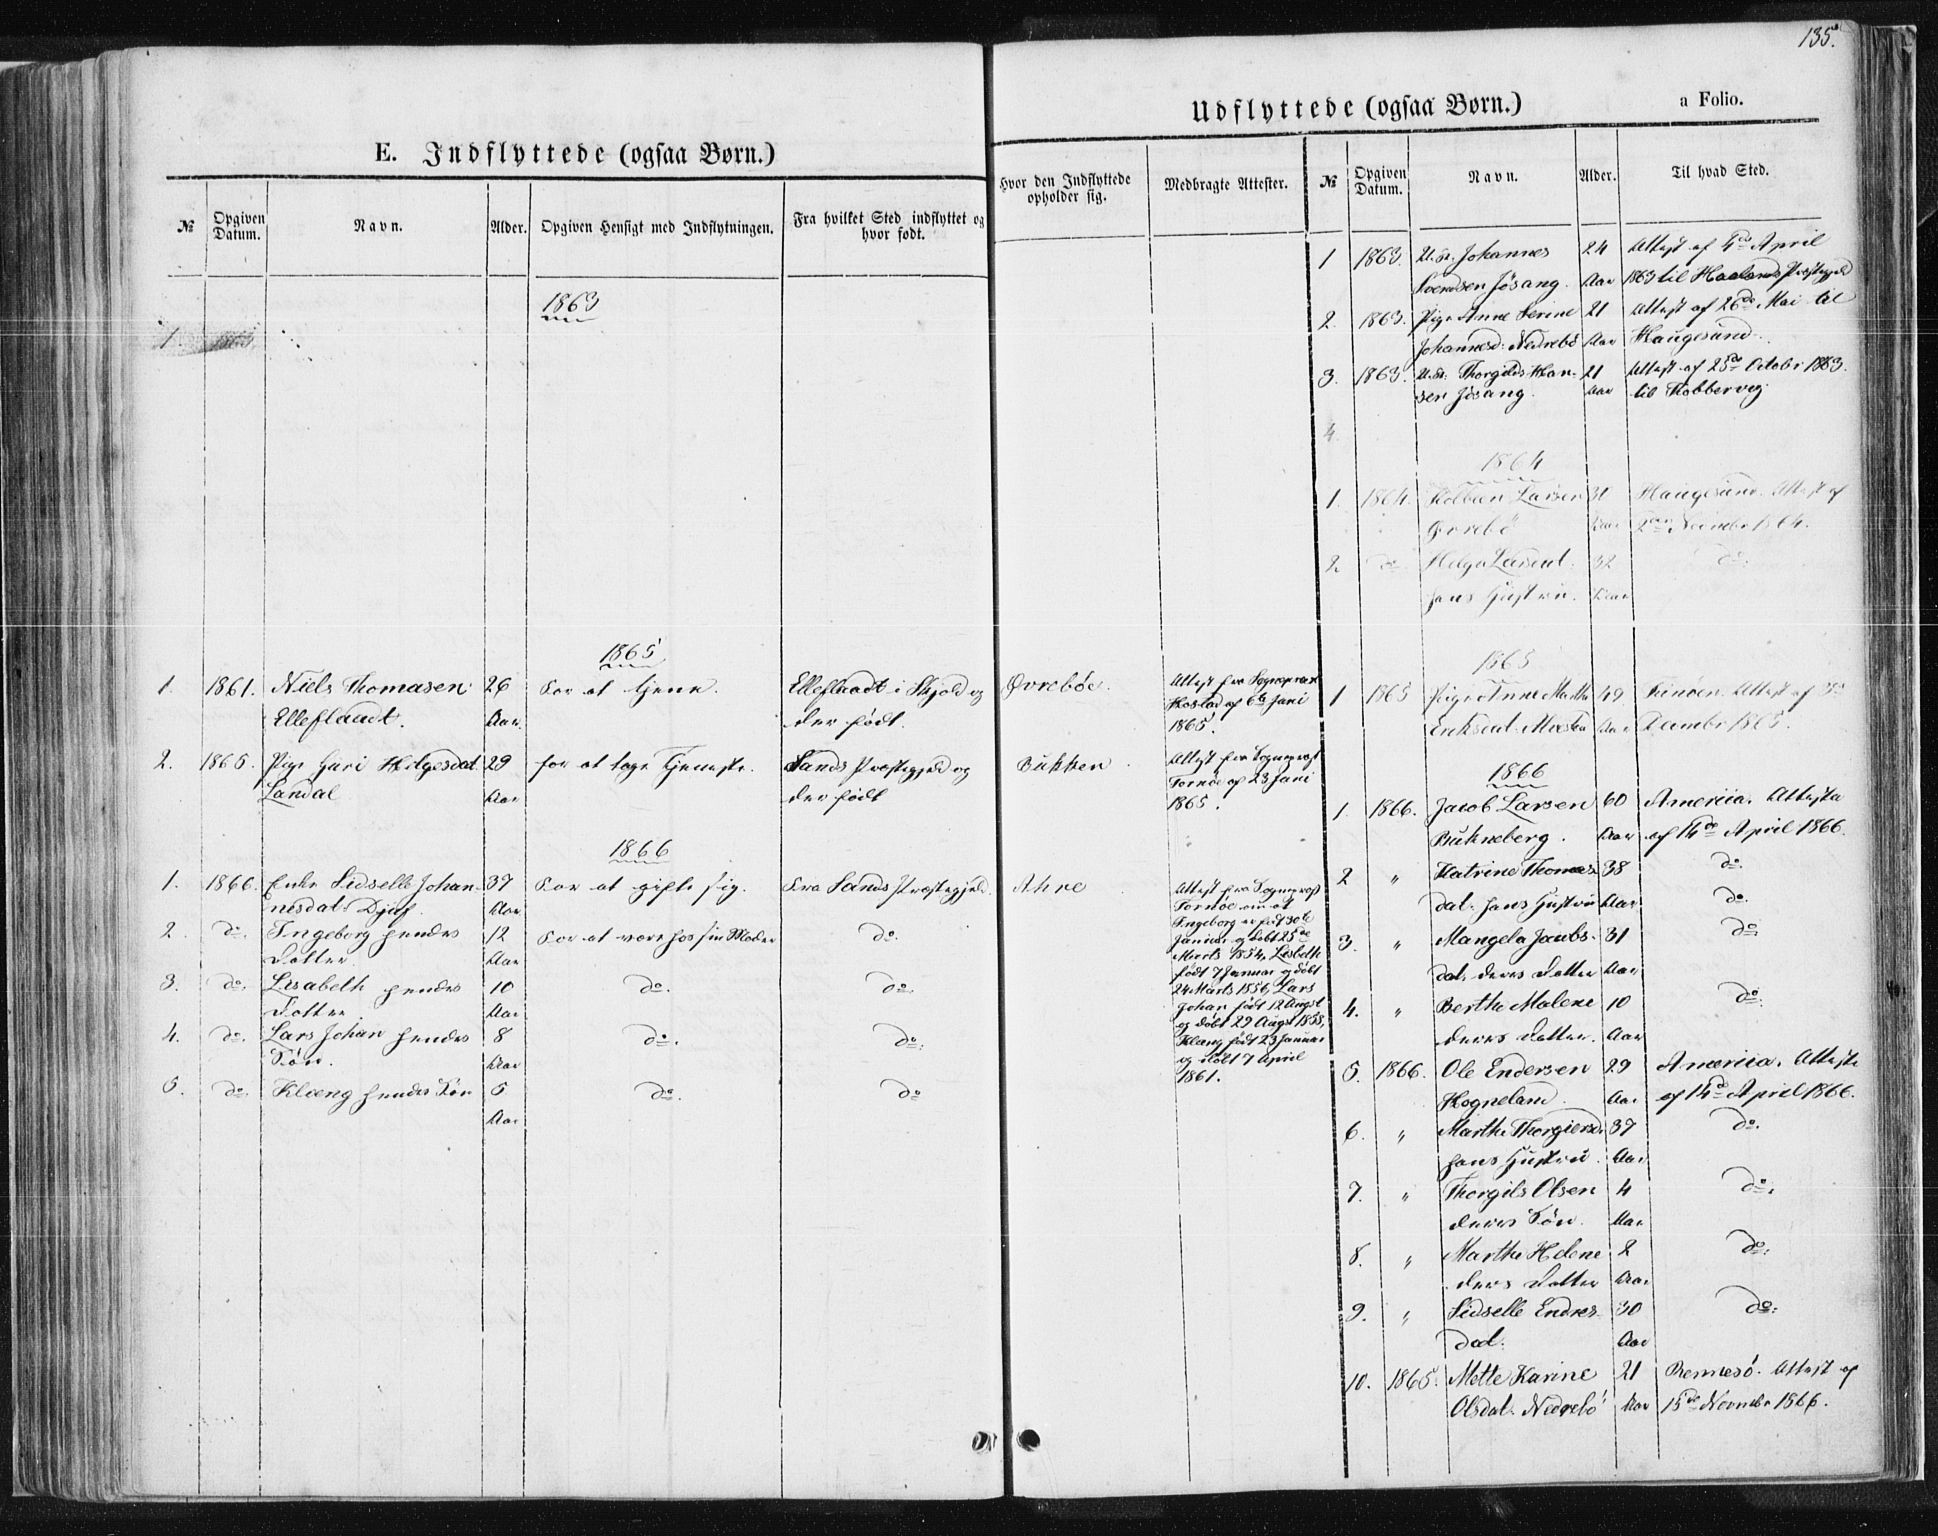 E. Indflyttede (ogsaa Børn.)
№ Opgiven Datum. Navn. Alder. Opgiven Hensigt med Indflytningen. Fra hvilket Sted indflyttet og hvor født.
Hvor den Indflyttede opholder sig. Medbragte Attester.
1863
1
1865
1. 1861. Niels Thomasen 26 For at tjene. Elleflaadt i Skjold og Øvrebøe. Attest fra Sognepræst
Elleflaadt. Aar. der født. af 6te Juni
1865.
2. 1865. Pige Guri Helgesdat. 29 for at tage Tjeneste. Sands Præstegjeld og Bukken Attest fra Sognepræst
Landal Aar der født Tornøe af 23 Juni
1865.
1866
1. 1866. Enke Sidselle Johan- 37 For at gifte sig. Fra Sands Præstegjeld. Ahre Attest fra Sognepræst
nesdat. Djuf. Aar Tornøe om at
2. do. Ingeborg hendes 12 For at være hos sin Moder do. Ingeborg er født 30te
Datter Aar Januar og døbt 25de
Marts 1854, Lisbeth
3. do. Lisabeth hendes 10 do. do. født 7 Januar og døbt
Datter. Aar 24 Marts 1856, Lars
Johan født 12 August
4. do. Lars Johan hendes 8 do. do. og døbt 29 August 1858,
Søn. Aar Klæng født 23 Januar
og døbt 7 April
5. do. Klæng hendes Søn 5 do. do 1861.
Aar
135.
Udflyttede (ogsaa Børn.) a Folio.
№ Opgiven Datum. Navn. Alder. Til hvad Sted.
1 1863. U. K. Johannes 24 Attest af 4de April
Svendsen Jøsang. Aar 1863 til Haalands Præstegjeld
2. 1863. Pige Anne Serine 21 Attest af 26de Mai til
Johannesd: Nedrebö Aar Haugesund.
3. 1863. U. K. Thorgils Han- 21 Attest af 25de Octobr 1863.
sen Jøsang. Aar til Kobbervig
4.
1864
1. 1864. Kolbein Larsen 30 Haugesund. Attest af
Øvrebö Aar Novembr 1864.
2 do Helga Larsdat. 32 do.
hans Hustru. Aar
1865
1 1865 Pige Anne Marthe 49 Attest af
Eriksdat. Aar Decembr 1865.
1866
1. 1866. Jacob Larsen 60 America. Attester
Bukneberg. Aar af 14de April 1866.
2 " Katrine Thomas- 38 do.
dat. hans Hustru Aar do.
3. " Mangela Jacobs- 31 do.
dat. deres Datter Aar
4. " Berthe Malene 10 do.
deres Datter. Aar
5. 1866. Ole Endersen 29 America. Attester
Hogneland. Aar af 14de April 1866.
6. " Marthe Thorgiersd. 37 do.
hans Hustru. Aar
7. " Thorgils Olsen 4 do.
deres Søn. Aar
8. " Marthe Helene 2 do.
deres Datter Aar
9. " Sidselle Endres- 30 do.
dat. Aar
10. 1865. Mette Karine 21 Rennesö. Attest af
Olsdat. Nedrebö Aar 15de Novembr 1866.